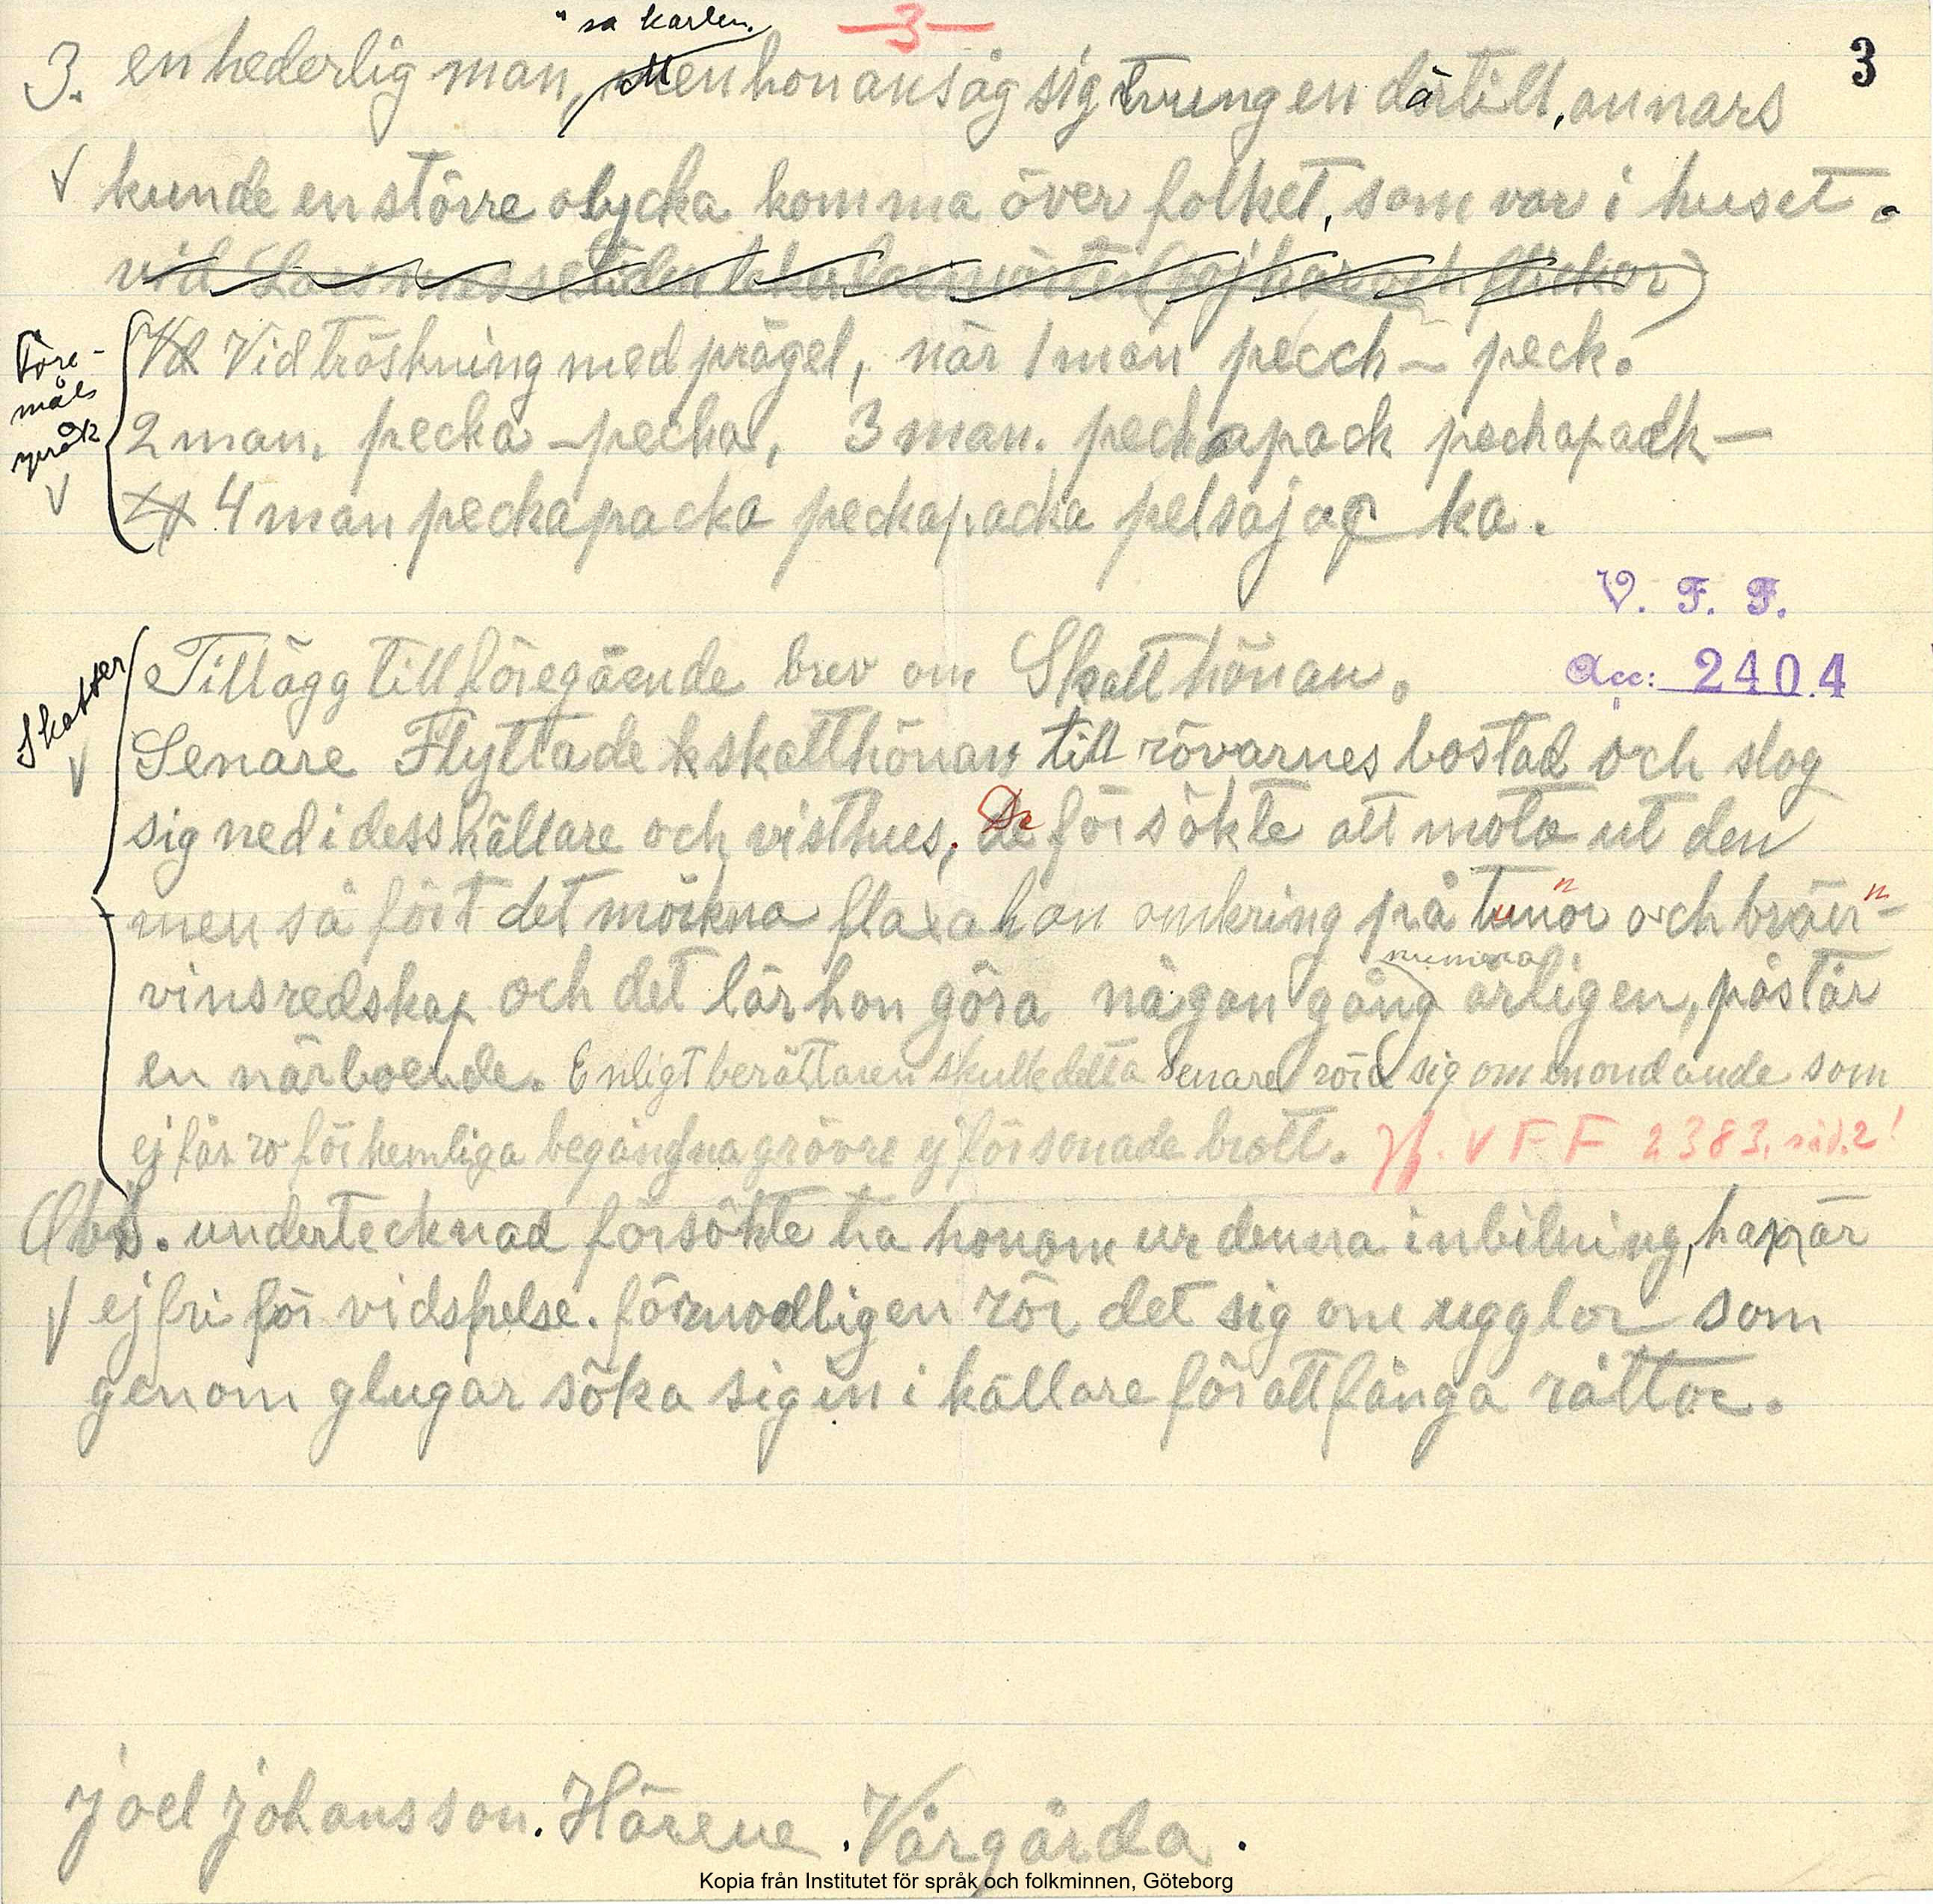 " sa karlen.
—3—
3
3. en hederlig man, Men hon ansåg sig tvungen därtill, annars
kunde en större olycka komma över folket, som var i huset.
vid
Före-
måls
språk
Vid Vid tröskning med prägel, när 1 man peeck – peck.
2 man. pecka – pecka, 3 man. peckapack peckapack —
4 man peckapacka peckapacka pelsajacka.
V. F. F.
Acc: 2404
Skatter
Tillägg till föregående brev om Skatthönan.
Senare Flyttade skatthönan till rövarnes bostad och slog
sig ned i dess källare och visthus, De försökte att mota ut den
men så fört det mörkna flaxa hon omkring på tunnor och bränn-
numera
vinsredskap och det lär hon göra någon gång årligen, påstår
en närboende. Enligt berättaren skulle detta senare röra sig om en ond ande som
ej får ro för hemliga begångna grövre ej försonade brott. Jfr. VFF 2383, sid. 2!
Obs. undertecknad försökte ta honom ur denna inbilning, han är
ej fri för vidspelse. förmodligen rör det sig om ugglor som
genom glugar söka sig in i källare för att fånga råttor.
Joel Johansson. Härene. Vårgårda.
Kopia från Institutet för språk och folkminnen, Göteborg